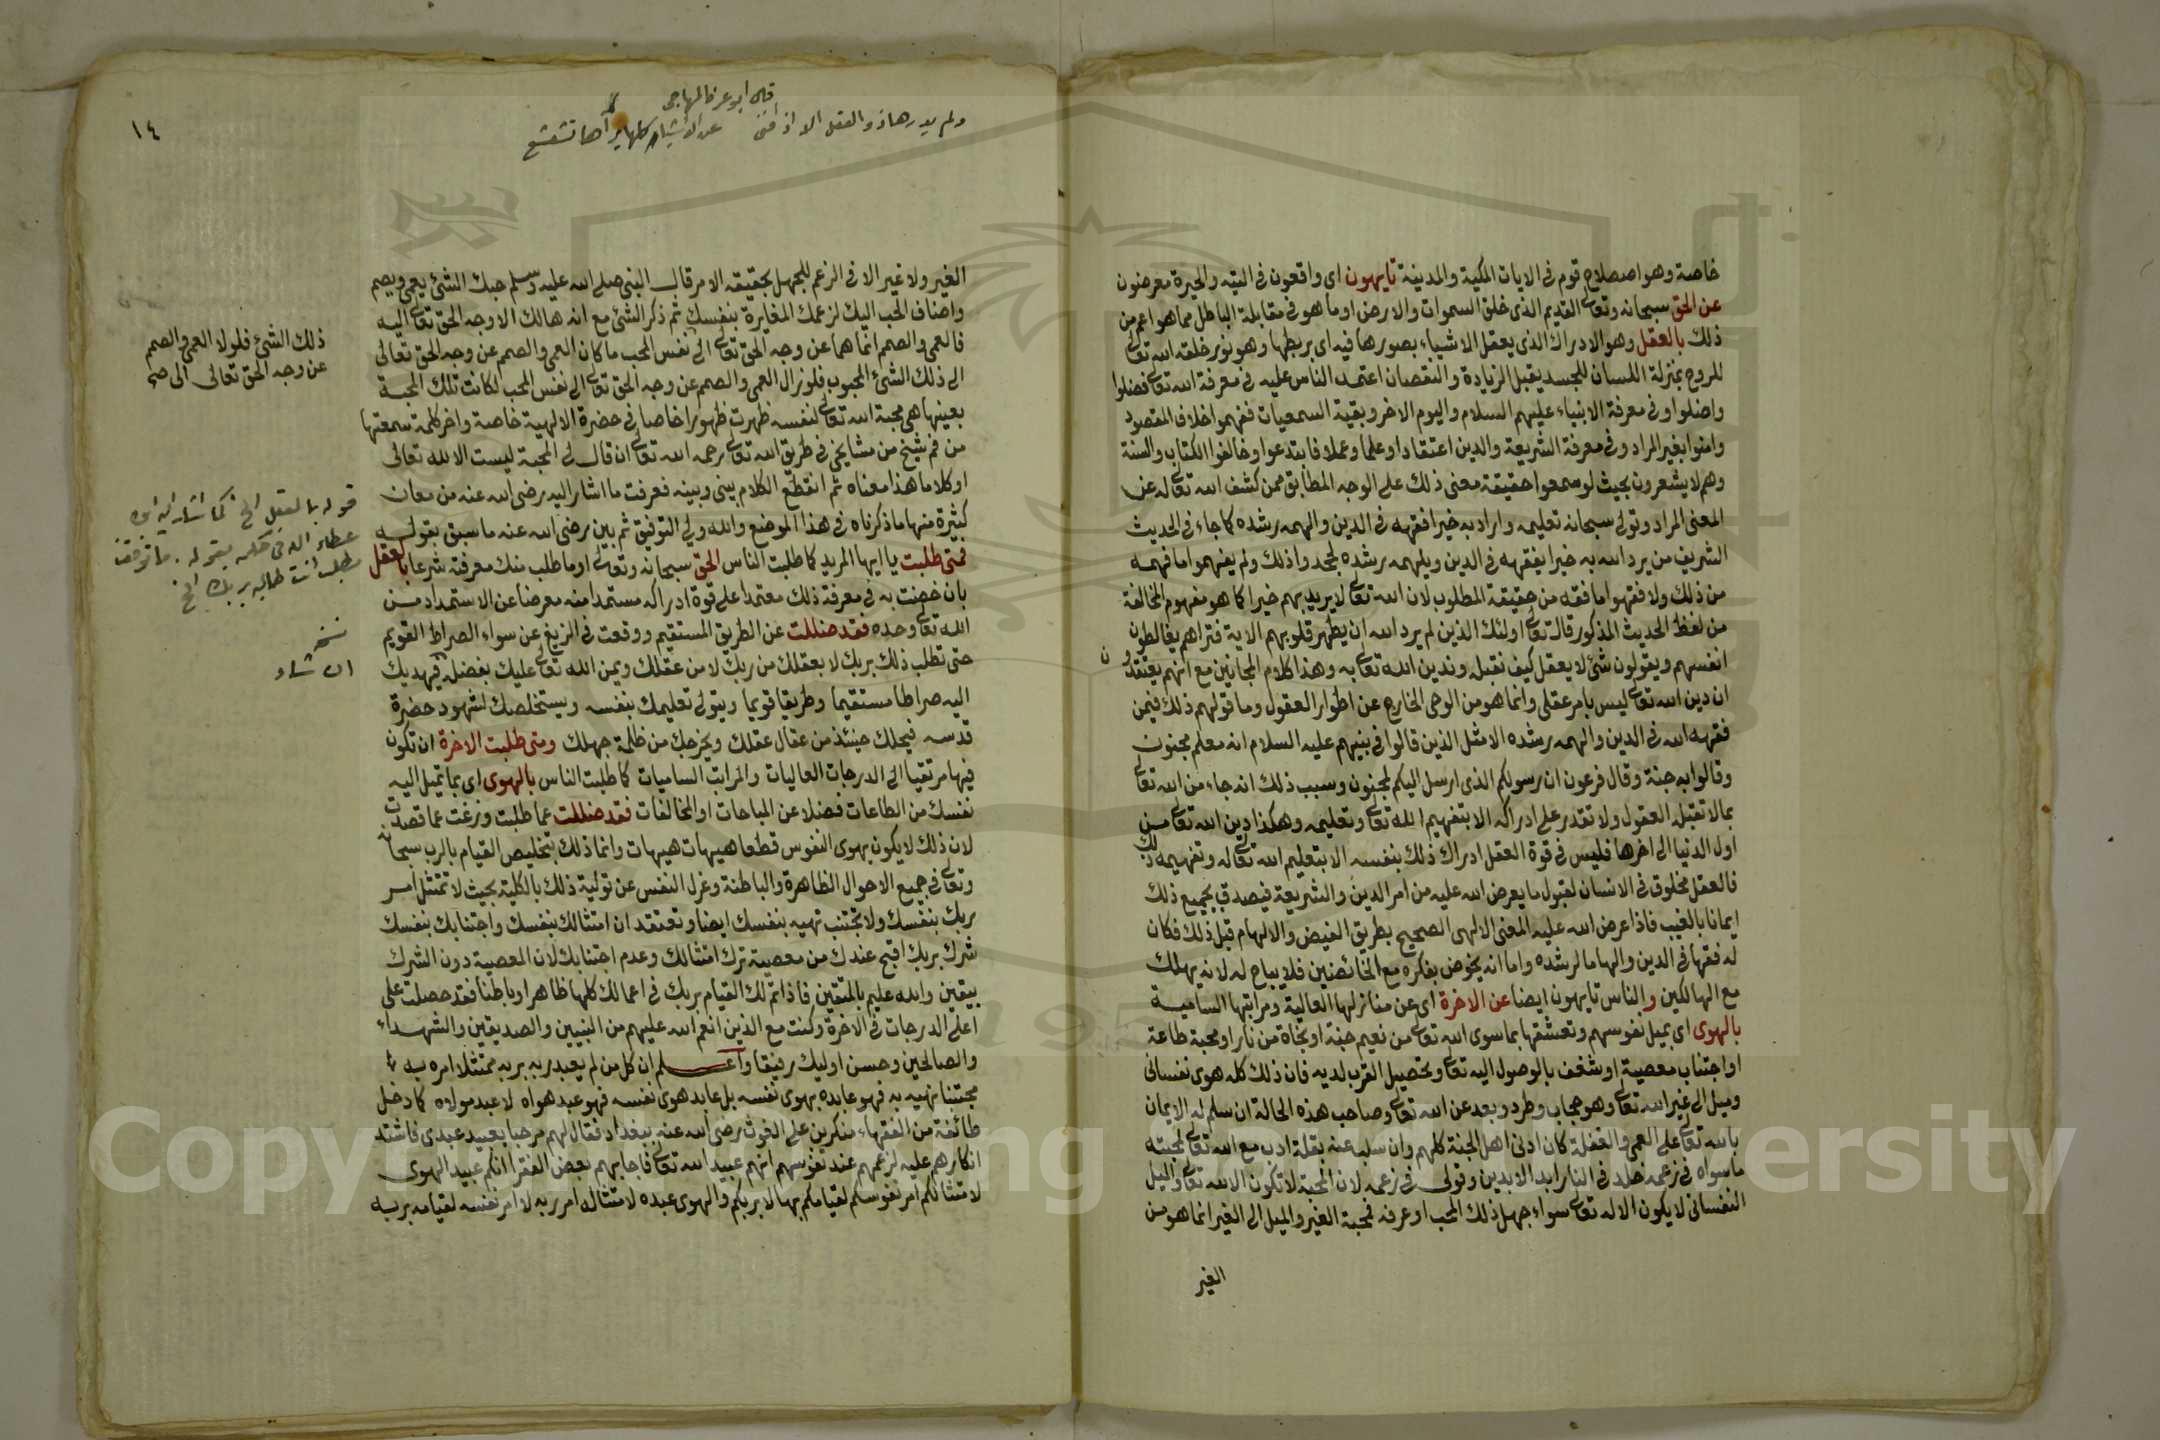 خاصة وهو اصطلاح قوم فى الايات المكية والمدنية تايهون اى واقعون فى التيه والحيرة معرضون
عن الحق سبحانه وتعالى القديم الذى خلق السموات والارض او ما هو فى مقابلة الباطل مما هو اعم من
ذلك بالعقل وهو الادراك الذى يعقل الاشياء بصورها فيه اى يربطها وهو نور خلقه الله تعالى
للروح بمنزلة اللسان للجسد يقبل الزيادة والنقصان اعتمد الناس عليه فى معرفة الله تعالى فضلوا
واضلوا وفى معرفة الانبياء عليهم السلام واليوم الاخر وبقية السمعيات ففهموا خلاف المقصود
وامنوا بغير المراد وفى معرفة الشريعة والدين اعتقادا وعلما وعملا فابتدعوا وخالفوا الكتاب والسنة
وهم لا يشعرون بحيث لو سمعوا حقيقة معنى ذلك على الوجه المطابق ممن كشف الله تعالى له عن
المعنى المراد وتولى سبحانه تعليمه واراد به خيرا ففقهه فى الدين والهمه رشده كما جاء فى الحديث
الشريف من يرد الله به خيرا يفقهه فى الدين ويلهمه رشده لجحدوا ذلك ولم يفهموا ما فهمه
من ذلك ولا فقهوا ما فقه من حقيقة المطلوب لان الله تعالى لا يريد بهم خيرا كما هو مفهوم المخالفة
من لفظ الحديث المذكور قال تعالى اولئك الذين لم يرد الله ان يطهر قلوبهم الاية فتراهم يغالطون
انفسهم ويقولون شئ لا يعقل كيف نقبله وندين الله تعالى به وهذا كلام المجانين مع انهم يعتقدون
ان دين الله تعالى ليس بامر عقلى وانما هو من الوحى الخارج عن اطوار العقول وما قولهم ذلك فيمن
فقهه الله فى الدين والهمه رشده الا مثل الذين قالوا فى نبيهم عليه السلام انه معلم مجنون
وقالوا به جنة وقال فرعون ان رسولكم الذى ارسل اليكم لمجنون وسبب ذلك انه جاء من الله تعالى
بما لا تقبله العقول ولا تقدر على ادراكه الا بتفهيم الله تعالى وتعليمه وهكذا دين الله تعالى من
اول الدنيا الى اخرها فليس فى قوة العقل ادراك ذلك بنفسه الا بتعليم الله تعالى له وتفهيمه ذلك
فالعقل مخلوق فى الانسان لقبول ما يعرض الله عليه من امر الدين والشريعة فيصدق بجميع ذلك
ايمانا بالغيب فاذا عرض الله عليه المعنى الالهى الصحيح بطريق الفيض والالهام قبل ذلك فكان
له فقها فى الدين والهاما لرشده واما انه يخوض بفكره مع الخائضين فلا يباح له لانه يهلك
مع الهالكين والناس تايهون ايضا عن الاخرة اى عن منازلها العالية ومراتبها السامية
بالهوى اى بميل نفوسهم وتعشقها بما سوى الله تعالى من نعيم جنة او نجاة من نار او محبة طاعة
او اجتناب معصية او شغف بالوصول اليه تعالى وتحصيل القرب لديه فان ذلك كله هوى نفسانى
وميل الى غير الله تعالى وهو حجاب وطرد وبعد عن الله تعالى وصاحب هذه الحالة ان سلم له الايمان
بالله تعالى على العمى والغفلة كان ادنى اهل الجنة كلهم وان سلبه عنه بقلة ادب مع الله تعالى لمحبته
ما سواه فى زعمه خلد فى النار ابد الابدين وقولى فى زعمه لان المحبة لا تكون الا لله تعالى والميل
النفسانى لا يكون الا له تعالى سواء جهل ذلك المحب او عرفه فمحبة الغير والميل الى الغير انما هو من
الغير
١٤
ولم يدرها ذو العقل الا اذ افنى
عن الاشياء كلها
الغير ولا غير الا فى الزعم للجهل بحقيقة الامر قال النبى صلى الله عليه وسلم حبك الشئ يعمى ويصم
واضاف الحب اليك لزعمك المغايرة بنفسك ثم ذكر الشئ مع انه هالك الا وجه الحق تعالى اليه
فالعمى والصمم انما هما عن وجه الحق تعالى الى نفس المحب ما كان العمى والصمم عن وجه الحق تعالى
الى ذلك الشئ المحبوب فلو زال العمى والصمم عن وجه الحق تعالى الى نفس المحب لكانت تلك المحبة
بعينها هى محبة الله تعالى لنفسه ظهرت ظهورا خاصا فى حضرة الالهية خاصة واخر كلمة سمعتها
من فم شيخ من مشايخى فى طريق الله تعالى رحمه الله تعالى ان قال لى المحبة ليست الا لله تعالى
او كلاما هذا معناه ثم انقطع الكلام بينى وبينه فعرفت ما اشار اليه رضى الله عنه من معان
كثيرة منها ما ذكرناه فى هذا الموضع والله ولى التوفيق ثم بين رضى الله عنه ما سبق بقوله
فمتى طلبت يا ايها المريد كما طلبت الناس الحق سبحانه وتعالى او ما طلب منك معرفته شرعا بالعقل
بان خضت به فى معرفة ذلك معتمدا على قوة ادراكه مستمدا منه معرضا عن الاستمداد من
الله تعالى وحده فقد ضللت عن الطريق المستقيم ووقعت فى الزيغ عن سواء الصراط القويم
حتى تطلب ذلك بربك لا بعقلك من ربك لا من عقلك ويمن الله تعالى عليك بفضله فيهديك
اليه صراطا مستقيما وطريقا قويما ويتولى تعليمك بنفسه ويستخلصك لشهود حضرة
قدسه فيحلك حينئذ من عقال عقلك ويخرجك من ظلمة جهلك ومتى طلبت الاخرة ان تكون
فيها مرتقيا الى الدرجات العاليات والمراتب الساميات كما طلبت الناس بالهوى اى بما تميل اليه
نفسك من الطاعات فضلا عن المباحات او المخالفات فقد ضللت عما طلبت وزغت عما قصدت
لان ذلك لا يكون بهوى النفوس قطعا هيهات هيهات وانما ذلك بتخليص القيام بالرب سبحانه
وتعالى فى جميع الاحوال الظاهرة والباطنة وعزل النفس عن تولية ذلك بالكلية بحيث لا تمتثل امر
ربك بنفسك ولا تجتنب نهيه بنفسك ايضا وتعتقد ان امتثالك بنفسك واجتنابك بنفسك
شرك بربك اقبح عندك من معصية ترك امتثالك وعدم اجتنابك لان المعصية دون الشرك
بيقين والله عليم بالمتقين فاذا تم لك القيام بربك فى اعمالك كلها ظاهرا وباطنا فقد حصلت على
اعلى الدرجات فى الاخرة وكنت مع الذين انعم الله عليهم من النبيين والصديقين والشهداء
والصالحين وحسن اوليك رفيقا واعلم ان كل من لم يعبد ربه بربه ممتثلا امره به
مجتنبا نهيه به فهو عابده بهوى نفسه بل عابد هوى نفسه فهو عبد هواه لا عبد مولاه كما دخل
طائفة من الفقهاء منكرين على الغوث رضى الله عنه ببغداد فقال لهم مرحبا بعبيد عبدى فاشتد
انكارهم عليه لزعمهم عند نفوسهم انهم عبيد الله تعالى فاجابهم بعض الفقرا انكم عبيد الهوى
لامتثالكم امر نفوسكم لقيامكم بها لا بربكم والهوى عبده لامتثاله امر ربه لا امر نفسه لقيامه بربه
ذلك الشئ فلولا العمى والصمم
عن وجه الحق تعالى الى صح
قوله بالعقل الخ كما اشار اليه ابن
عطاء الله فى حكمه بقوله ما توقف
مطلب انت طالبه بربك الخ
نسخه
ان شاء
Copyright © King Saud University
1957